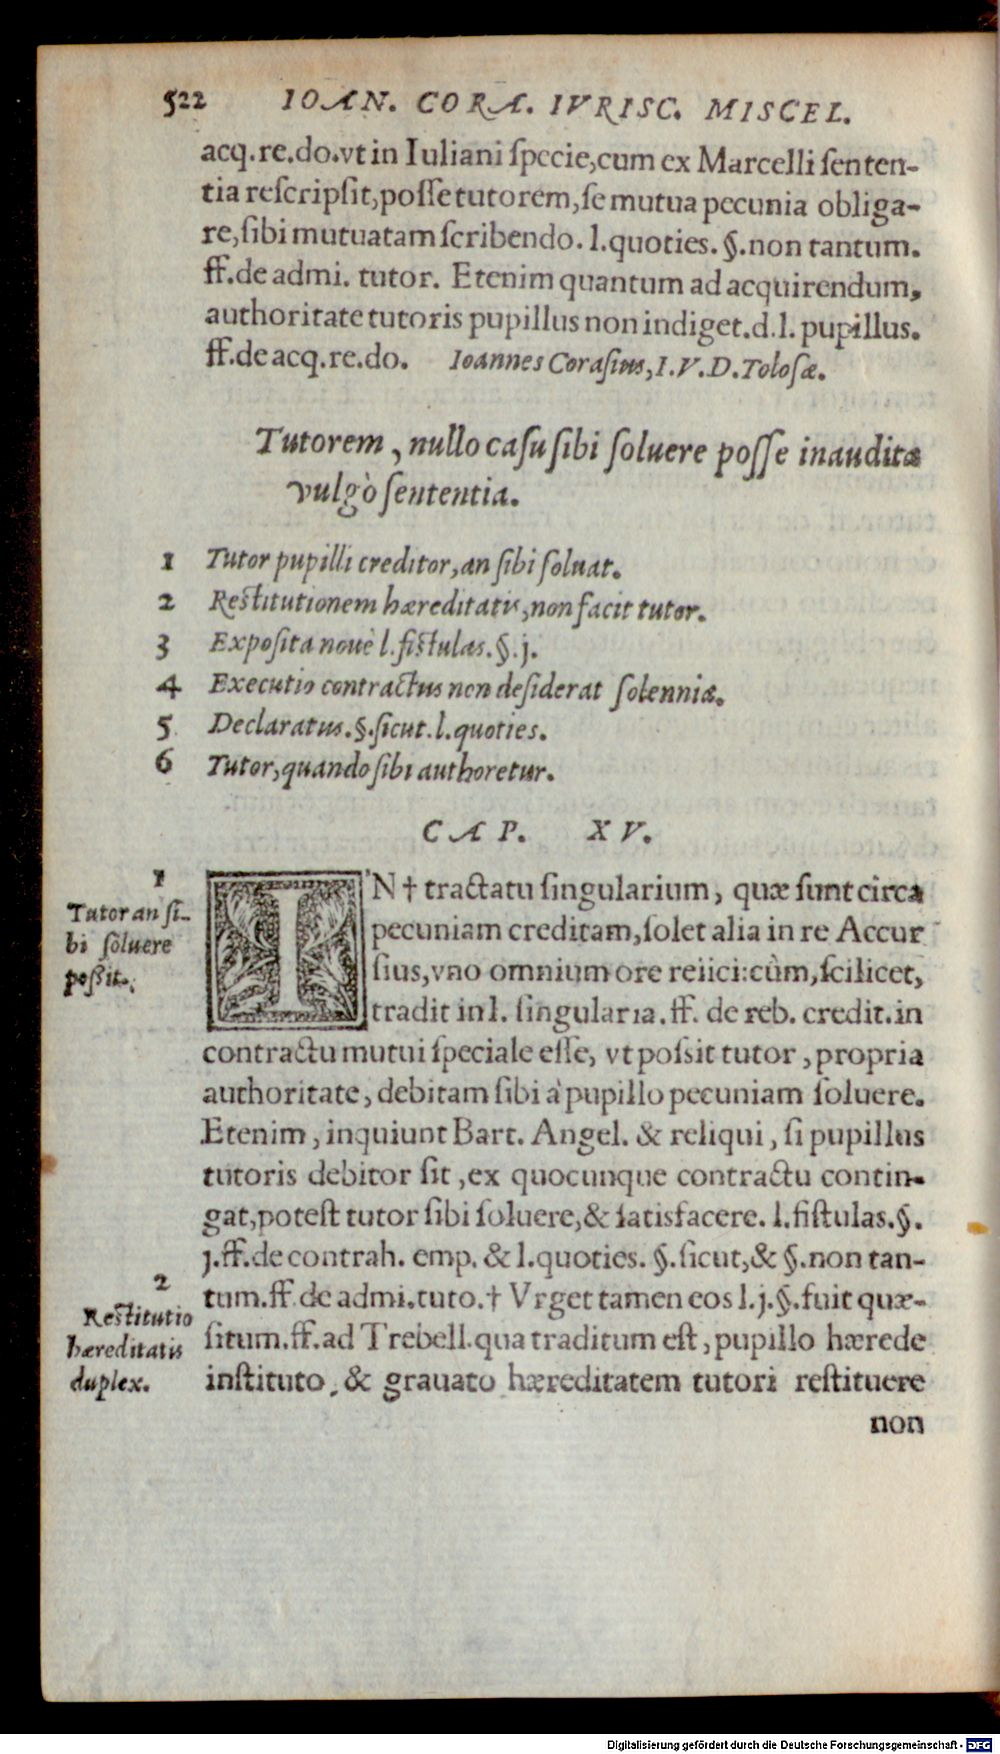 522 IOAN. CORA. IVRISC. MISCEL.
acq.re.do.vt in Iuliani specie,cum ex Marcelli senten-
tia rescripsit,posse tutorem,se mutua pecunia obliga-
re,sibi mutuatam scribendo. l.quoties. §.non tantum.
ff.de admi. tutor. Etenim quantum ad acquirendum,
authoritate tutoris pupillus non indiget.d.l. pupillus.
ff.de acq.re.do. Ioannes Corasius, I.V.D.Tolosæ.
Tutorem, nullo casu sibi soluere posse inaudita
vulgò sententia.
1 Tutor pupilli creditor,an sibi soluat.
2 Restitutionem hæreditatis,non facit tutor.
3 Exposita nouè l.fistulas.§.j.
4 Executio contractus non desiderat solenniæ.
5 Declaratus.§.sicut.l.quoties.
6 Tutor,quando sibi authoretur.
CAP. XV.
1
Tutor an si-
bi soluere
possit.
IN † tractatu singularium, quæ sunt circa
pecuniam creditam,solet alia in re Accur
sius,vno omnium ore reiici:cùm,scilicet,
tradit in l. singularia.ff. de reb. credit.in
contractu mutui speciale esse, vt possit tutor, propria
authoritate, debitam sibi à pupillo pecuniam soluere.
Etenim, inquiunt Bart. Angel. & reliqui, si pupillus
tutoris debitor sit, ex quocunque contractu contin-
gat,potest tutor sibi soluere,& satisfacere. l.fistulas.§.
j.ff.de contrah. emp. & l.quoties. §.sicut,& §.non tan-
tum.ff.de admi.tuto.† Vrget tamen eos l.j.§.fuit quæ-
situm.ff.ad Trebell.qua traditum est, pupillo hærede
instituto, & grauato hæreditatem tutori restituere
2
Restitutio
hæreditatis
duplex.
non
Digitalisierung gefördert durch die Deutsche Forschungsgemeinschaft - DFG